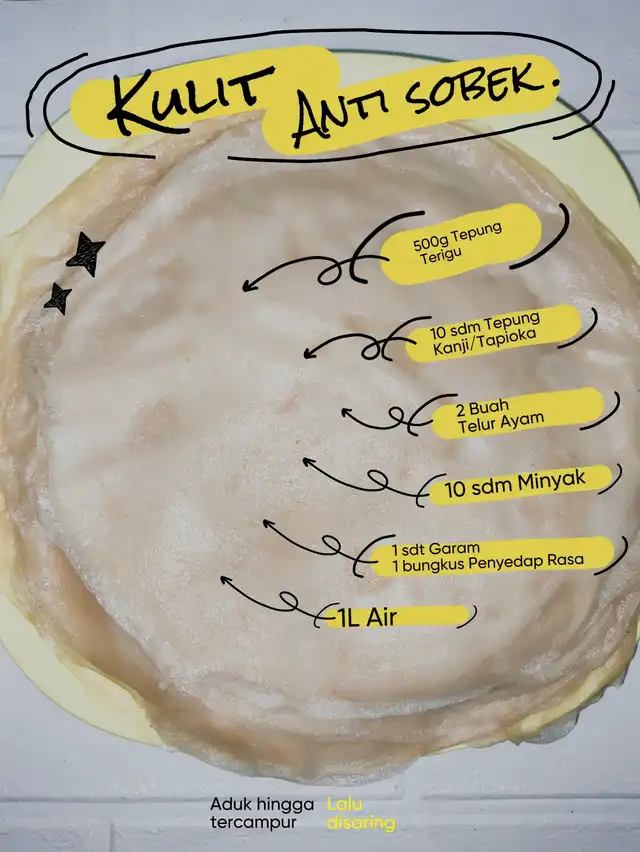 KULIT ANTI SOBEK.
500g Tepung
Terigu
10 sdm Tepung
Kanji/Tapioka
2 Buah
Telur Ayam
10 sdm Minyak
1 sdt Garam
1 bungkus Penyedap Rasa
1L Air
Aduk hingga
tercampur
Lalu
disaring